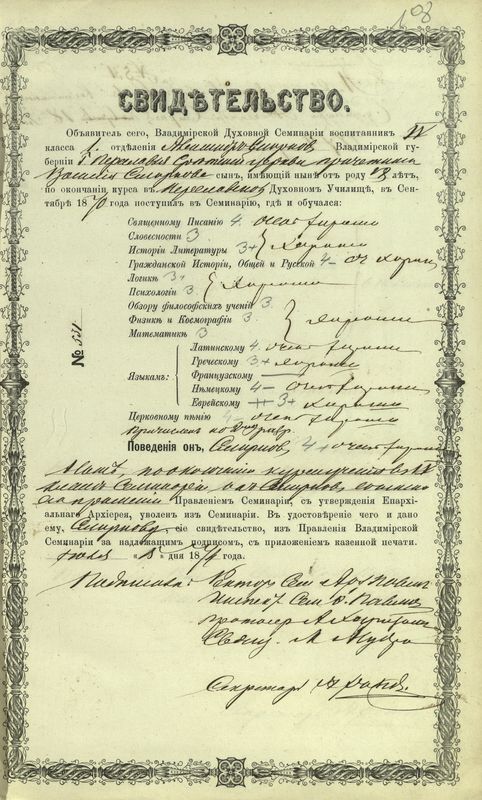 108
СВИДѢТЕЛЬСТВО.
Объявитель сего, Владимірской Духовной Семинаріи воспитанникъ IV
класса 1. отдѣленія Смирновъ Владимірской гу-
берніи г. Переславля церкви причетника
Василія Смирнова сынъ, имѣющій нынѣ отъ роду лѣтъ,
по окончаніи курса въ Переславском Духовномъ Училищѣ, въ Сен-
тябрѣ 1870 года поступилъ въ Семинарію, гдѣ и обучался:
Священному Писанію 4. очень хорошо
Словесности 3
Исторіи Литературы 3+ хорошо
Гражданской Исторіи, Общей и Русской 4- оч. хорошо
Логикѣ 3+
Психологіи 3. хорошо
Обзору философскихъ ученій 3.
Физикѣ и Космографіи 3. хорошо
Математикѣ 3
№ 551
Языкамъ:
Латинскому 4. очень хорошо
Греческому 3+ хорошо
Французскому —
Нѣмецкому 4- очень хорошо
Еврейскому 3+ хорошо
Церковному пѣнію 4- очень хорошо
Причисленъ ко разр.
Поведенія онъ, Смирновъ, 4+ очень хорошо
А самъ, по окончаніи курса ученія въ IV
классѣ Семинаріи, онъ Смирновъ, согласно
его прошенію Правленіемъ Семинаріи, съ утвержденія Епархі-
альнаго Архіерея, уволенъ изъ Семинаріи. Въ удостовѣреніе чего и дано
ему, Смирнову, сіе свидѣтельство, изъ Правленія Владимірской
Семинаріи за надлежащимъ подписомъ, съ приложеніемъ казенной печати.
Іюля дня 187 года.
Подписали: Ректоръ Сем. Арх. Павелъ
Инспек. Сем.
Протоіер. А.
Свящ. М.
Секретарь